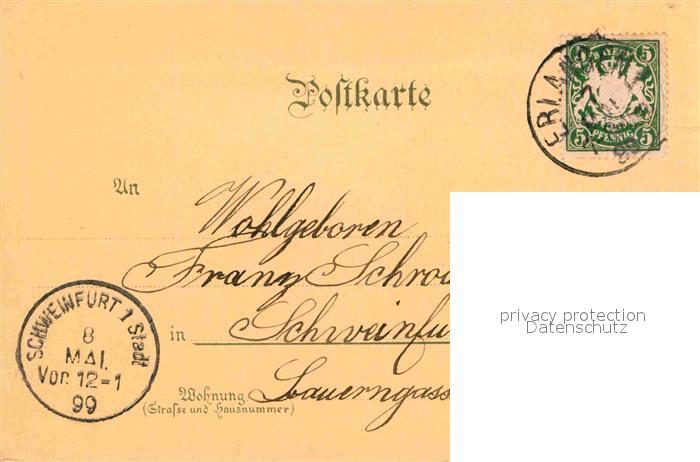 Postkarte
ERLANGEN
BAYERN
5 5
PFENNIG
5 5
An
Wohlgeboren
Franz
in Schweinfu
Wohnung
(Strasse und Hausnummer)
SCHWEINFURT 1 Stadt
8
MAI.
Vor. 12-1
99
privacy protection
Datenschutz